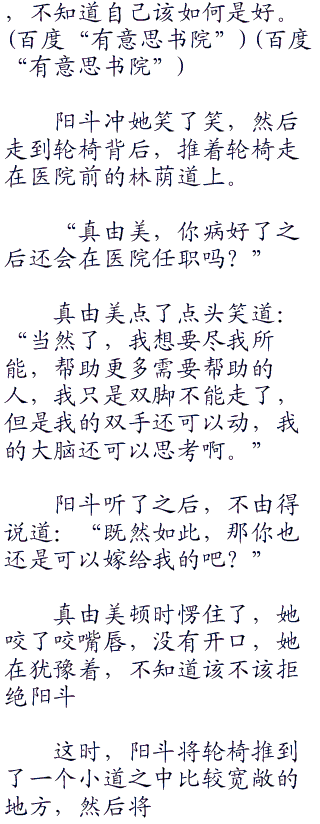 ，不知道自己该如何是好。
(百度“有意思书院”)(百度
“有意思书院”)
阳斗冲她笑了笑，然后
走到轮椅背后，推着轮椅走
在医院前的林荫道上。
“真由美，你病好了之
后还会在医院任职吗？”
真由美点了点头笑道：
“当然了，我想要尽我所
能，帮助更多需要帮助的
人，我只是双脚不能走了，
但是我的双手还可以动，我
的大脑还可以思考啊。”
阳斗听了之后，不由得
说道：“既然如此，那你也
还是可以嫁给我的吧？”
真由美顿时愣住了，她
咬了咬嘴唇，没有开口，她
在犹豫着，不知道该不该拒
绝阳斗
这时，阳斗将轮椅推到
了一个小道之中比较宽敞的
地方，然后将